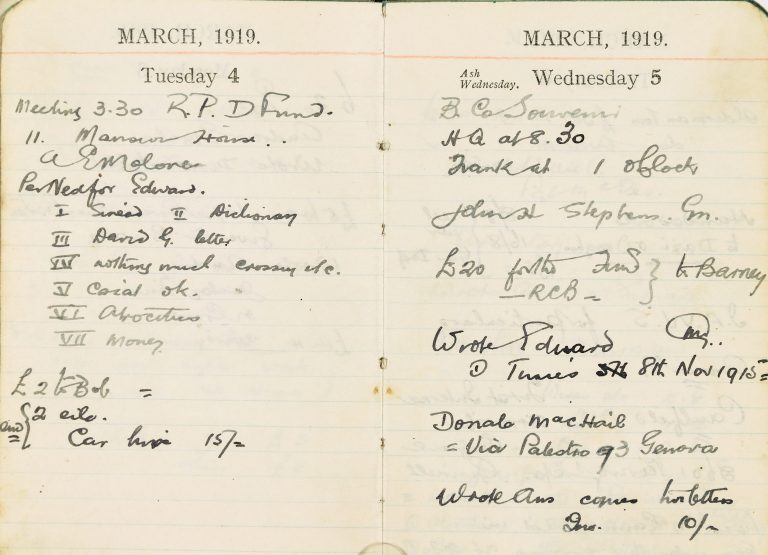 MARCH, 1919.
Tuesday 4
Meeting 3.30 R.P.D Fund.
11. Mansion House..
A E Malone
Per Ned for Edward.
I Sinéad II Dictionary
III David G. letter
IV nothing much crossing etc.
V Casal ok.
VI Atrocities
VII Money
£2 to Bob =
2 edo.
Car hire 15/=
MARCH, 1919.
Ash Wednesday. Wednesday 5
B. Co Souvenir
HQ at 8.30
Frank at 1 o'clock
John H Stephens. Gn.
£20 for the Fund } to Barney
— RCB =
Wrote Edward
D Times 8th Nov 1915=
Donald MacHail
= Via Palestro 93 Genova
Wrote Ans copies letters
Ins. 10/-